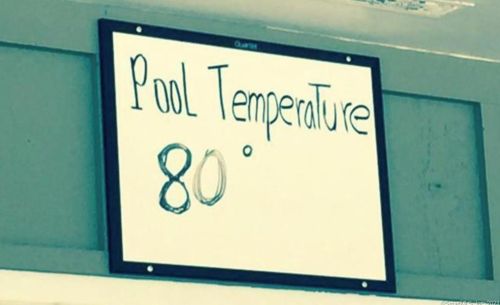 Quartet
Pool Temperature
80°